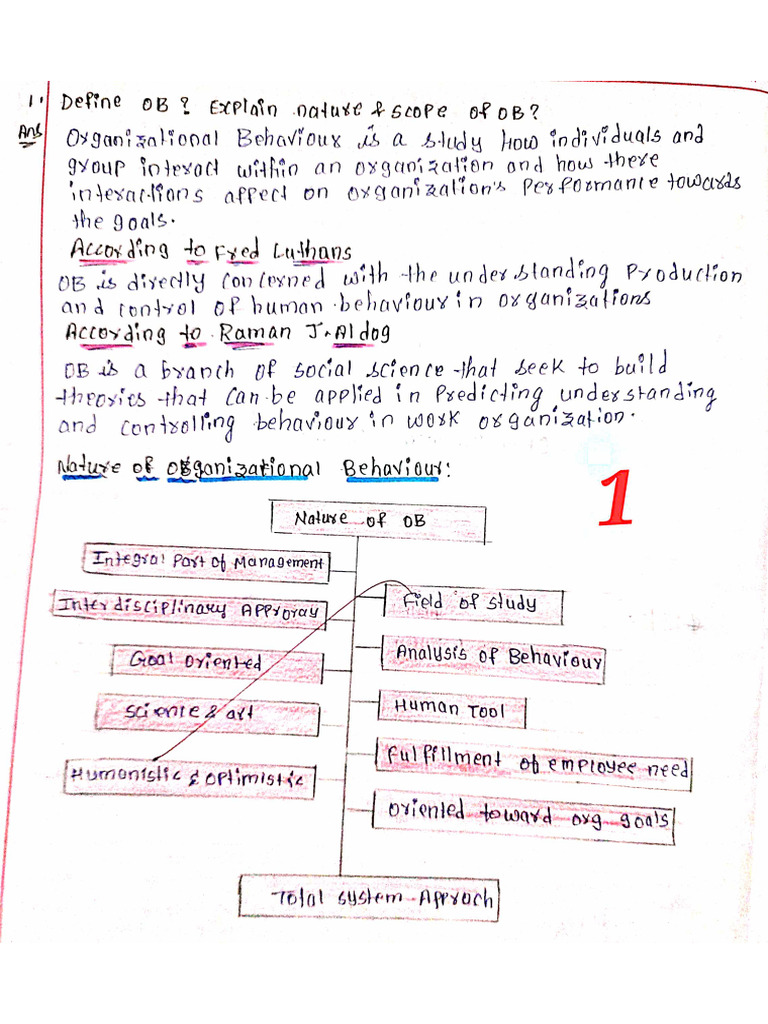 1. Define OB? Explain nature & scope of OB?
Ans Organizational Behaviour is a study how individuals and
group interact within an organization and how there
interactions affect on organization's performance towards
the goals.
According to Fred Luthans
OB is directly concerned with the understanding Production
and control of human behaviour in organizations
According to Raman J. Aldog
OB is a branch of social science that seek to build
theories that can be applied in Predicting understanding
and controlling behaviour in work organization.
Nature of Organizational Behaviour:
1
Nature of OB
Integral Part of Management
Field of study
Interdisciplinary Approray
Analysis of Behaviour
Goal oriented
Human Tool
Science & art
Fulfillment of employee need
Humanistic & optimistic
oriented toward org goals
Total system Approch